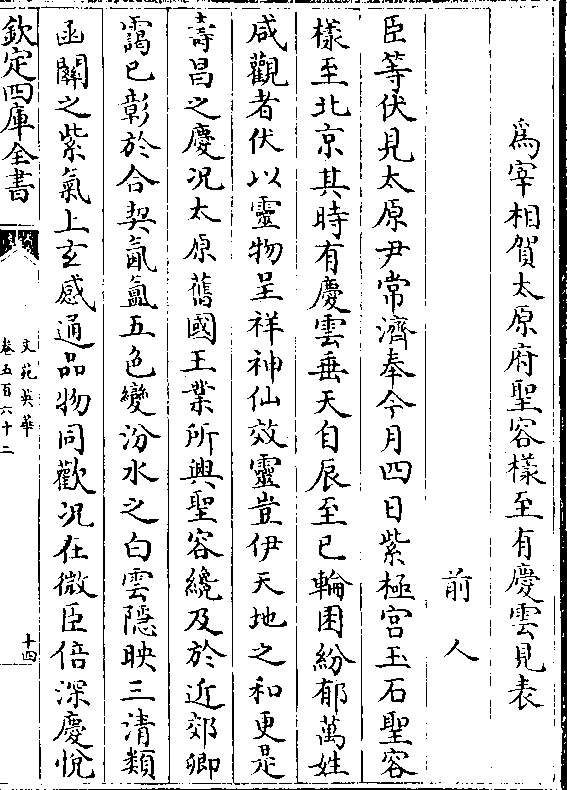 爲宰相賀太原府聖容樣至有慶雲見表
前人
臣等伏見太原尹常濟奉今月四日紫極宮玉石聖容
樣至北京其時有慶雲垂天自辰至巳輪囷紛郁萬姓
咸觀者伏以靈物呈祥神仙效靈豈伊天地之和更是
壽昌之慶况太原舊國王業所興聖容纔及於近郊卿
靄已彰於合契氤氳五色變汾水之白雲隱映三清類
函關之紫氣上玄感通品物同歡况在微臣倍深慶悅
欽定四庫全書
文苑英華
卷五百六十二
十四